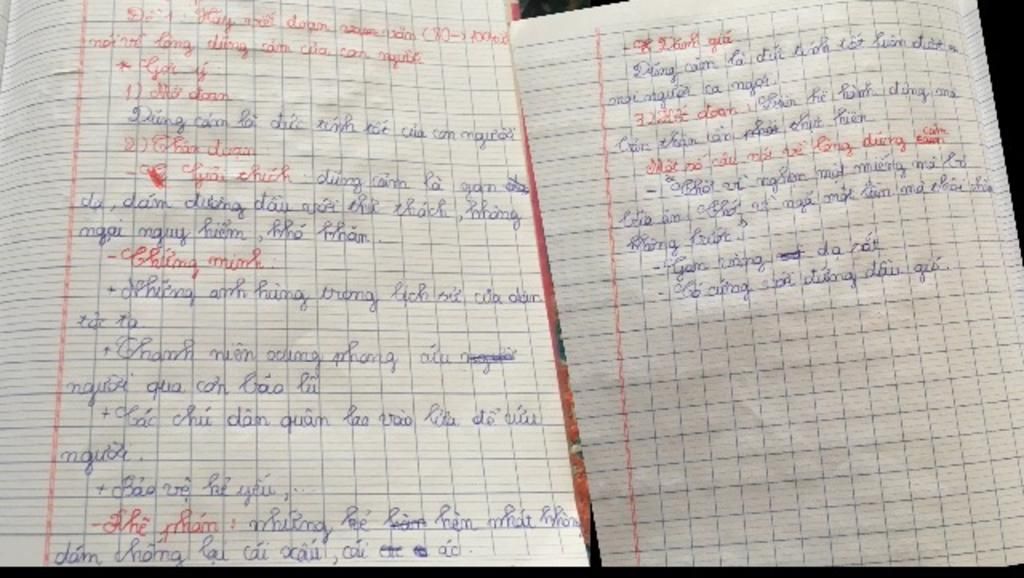 Đề 1: Hãy viết đoạn văn (80-) 100 chữ
nói về lòng dũng cảm của con người
* Gợi ý
1) Mở đoạn
Dũng cảm là đức tính tốt của con người
2) Thân đoạn
- Giải thích: dũng cảm là gan
dạ, dám đương đầu với thử thách, không
ngại nguy hiểm, khó khăn.
- Chứng minh:
+ Những anh hùng trong lịch sử của dân
tộc ta
+ Thanh niên xung phong cứu
người qua cơn bão lũ
+ Các chú dân quân lao vào lửa để cứu
người.
+ Bảo vệ kẻ yếu,...
- Phê phán: những kẻ hèn nhát không
dám chống lại cái xấu, cái ác.
- Đánh giá
Dũng cảm là đức tính tốt luôn được
mọi người ca ngợi.
3. Kết đoạn: Liên hệ hành động mà
bản thân cần thực hiện
Một số câu nói về lòng dũng cảm
- Chết vì nghẹn một miếng mà bỏ
bữa ăn, chớ vì ngã một lần mà
không bước.
- Gan vàng dạ sắt
- Có cứng mới đứng đầu gió.